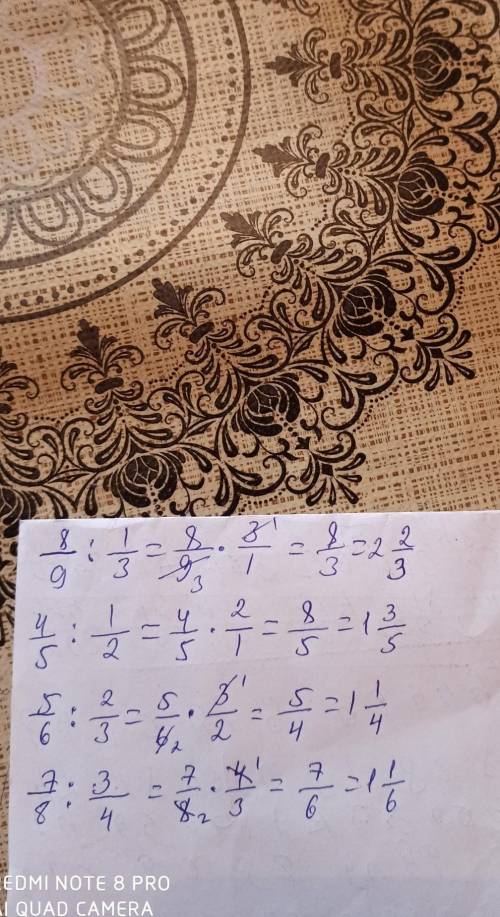 8/9 : 1/3 = 8/9 3 · 3 1/1 = 8/3 = 2 2/3
4/5 : 1/2 = 4/5 · 2/1 = 8/5 = 1 3/5
5/6 : 2/3 = 5/6 2 · 3 1/2 = 5/4 = 1 1/4
7/8 : 3/4 = 7/8 2 · 4 1/3 = 7/6 = 1 1/6
EDMI NOTE 8 PRO
AI QUAD CAMERA